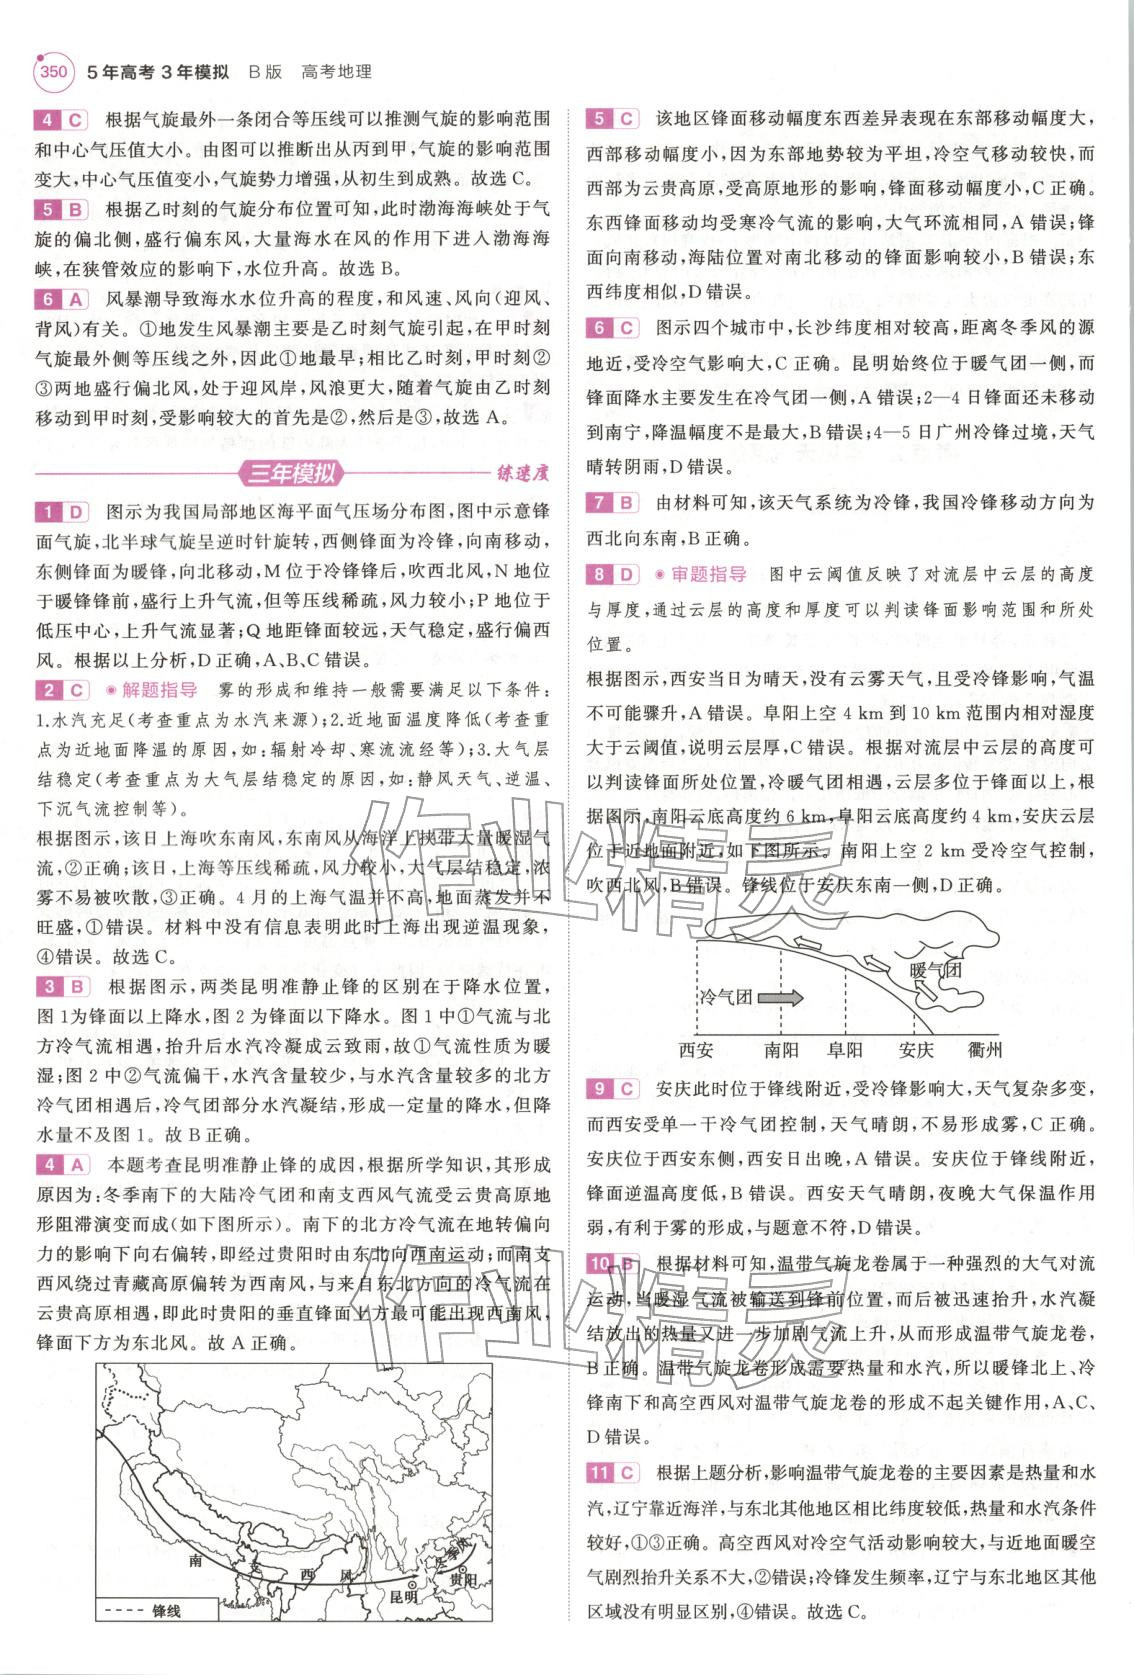 350 5年高考3年模拟 B版 高考地理
4 C 根据气旋最外一条闭合等压线可以推测气旋的影响范围
和中心气压值大小。由图可以推断出从丙到甲,气旋的影响范围
变大,中心气压值变小,气旋势力增强,从初生到成熟。故选C。
5 B 根据乙时刻的气旋分布位置可知,此时渤海海峡处于气
旋的偏北侧,盛行偏东风,大量海水在风的作用下进入渤海海
峡,在狭管效应的影响下,水位升高。故选B。
6 A 风暴潮导致海水水位升高的程度,和风速、风向(迎风、
背风)有关。①地发生风暴潮主要是乙时刻气旋引起,在甲时刻
气旋最外侧等压线之外,因此①地最早;相比乙时刻,甲时刻②
③两地盛行偏北风,处于迎风岸,风浪更大,随着气旋由乙时刻
移动到甲时刻,受影响较大的首先是②,然后是③,故选A。
三年模拟 练速度
1 D 图示为我国局部地区海平面气压场分布图,图中示意锋
面气旋,北半球气旋呈逆时针旋转,西侧锋面为冷锋,向南移动,
东侧锋面为暖锋,向北移动,M位于冷锋锋后,吹西北风,N地位
于暖锋锋前,盛行上升气流,但等压线稀疏,风力较小;P地位于
低压中心,上升气流显著;Q地距锋面较远,天气稳定,盛行偏西
风。根据以上分析,D正确,A、B、C错误。
2 C 解题指导 雾的形成和维持一般需要满足以下条件:
1.水汽充足(考查重点为水汽来源);2.近地面温度降低(考查重
点为近地面降温的原因,如:辐射冷却、寒流流经等);3.大气层
结稳定(考查重点为大气层结稳定的原因,如:静风天气、逆温、
下沉气流控制等)。
根据图示,该日上海吹东南风,东南风从海洋上挟带大量暖湿气
流,②正确;该日,上海等压线稀疏,风力较小,大气层结稳定,浓
雾不易被吹散,③正确。4月的上海气温并不高,地面蒸发并不
旺盛,①错误。材料中没有信息表明此时上海出现逆温现象,
④错误。故选C。
3 B 根据图示,两类昆明准静止锋的区别在于降水位置,
图1为锋面以上降水,图2为锋面以下降水。图1中①气流与北
方冷气流相遇,抬升后水汽冷凝成云致雨,故①气流性质为暖
湿;图2中②气流偏干,水汽含量较少,与水汽含量较多的北方
冷气团相遇后,冷气团部分水汽凝结,形成一定量的降水,但降
水量不及图1。故B正确。
4 A 本题考查昆明准静止锋的成因,根据所学知识,其形成
原因为:冬季南下的大陆冷气团和南支西风气流受云贵高原地
形阻滞演变而成(如下图所示)。南下的北方冷气流在地转偏向
力的影响下向右偏转,即经过贵阳时由东北向西南运动;而南支
西风绕过青藏高原偏转为西南风,与来自东北方向的冷气流在
云贵高原相遇,即此时贵阳的垂直锋面上方最可能出现西南风,
锋面下方为东北风。故A正确。
南 支 西 风
冬季风
昆明
贵阳
锋线
5 C 该地区锋面移动幅度东西差异表现在东部移动幅度大,
西部移动幅度小,因为东部地势较为平坦,冷空气移动较快,而
西部为云贵高原,受高原地形的影响,锋面移动幅度小,C正确。
东西锋面移动均受寒冷气流的影响,大气环流相同,A错误;锋
面向南移动,海陆位置对南北移动的锋面影响较小,B错误;东
西纬度相似,D错误。
6 C 图示四个城市中,长沙纬度相对较高,距离冬季风的源
地近,受冷空气影响大,C正确。昆明始终位于暖气团一侧,而
锋面降水主要发生在冷气团一侧,A错误;2—4日锋面还未移动
到南宁,降温幅度不是最大,B错误;4—5日广州冷锋过境,天气
晴转阴雨,D错误。
7 B 由材料可知,该天气系统为冷锋,我国冷锋移动方向为
西北向东南,B正确。
8 D 审题指导 图中云阈值反映了对流层中云层的高度
与厚度,通过云层的高度和厚度可以判读锋面影响范围和所处
位置。
根据图示,西安当日为晴天,没有云雾天气,且受冷锋影响,气温
不可能骤升,A错误。阜阳上空4 km到10 km范围内相对湿度
大于云阈值,说明云层厚,C错误。根据对流层中云层的高度可
以判读锋面所处位置,冷暖气团相遇,云层多位于锋面以上,根
据图示,南阳云底高度约6 km,阜阳云底高度约4 km,安庆云层
位于近地面附近,如下图所示。南阳上空2 km受冷空气控制,
吹西北风,B错误。锋线位于安庆东南一侧,D正确。
暖气团
冷气团
西安 南阳 阜阳 安庆 衢州
9 C 安庆此时位于锋线附近,受冷锋影响大,天气复杂多变,
而西安受单一干冷气团控制,天气晴朗,不易形成雾,C正确。
安庆位于西安东侧,西安日出晚,A错误。安庆位于锋线附近,
锋面逆温高度低,B错误。西安天气晴朗,夜晚大气保温作用
弱,有利于雾的形成,与题意不符,D错误。
10 B 根据材料可知,温带气旋龙卷属于一种强烈的大气对流
运动,当暖湿气流被输送到锋前位置,而后被迅速抬升,水汽凝
结放出的热量又进一步加剧气流上升,从而形成温带气旋龙卷,
B正确。温带气旋龙卷形成需要热量和水汽,所以暖锋北上、冷
锋南下和高空西风对温带气旋龙卷的形成不起关键作用,A、C、
D错误。
11 C 根据上题分析,影响温带气旋龙卷的主要因素是热量和水
汽,辽宁靠近海洋,与东北其他地区相比纬度较低,热量和水汽条件
较好,①③正确。高空西风对冷空气活动影响较大,与近地面暖空
气剧烈抬升关系不大,②错误;冷锋发生频率,辽宁与东北地区其他
区域没有明显区别,④错误。故选C。
作业精灵
作业精灵